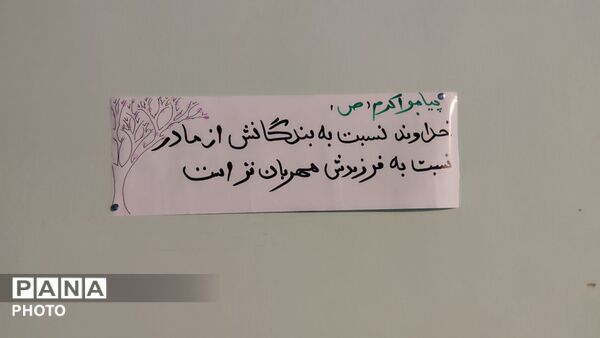 پیامبر اکرم (ص)
خداوند نسبت به بندگانش از مادر
نسبت به فرزندش مهربان تر است
PANA
PHOTO